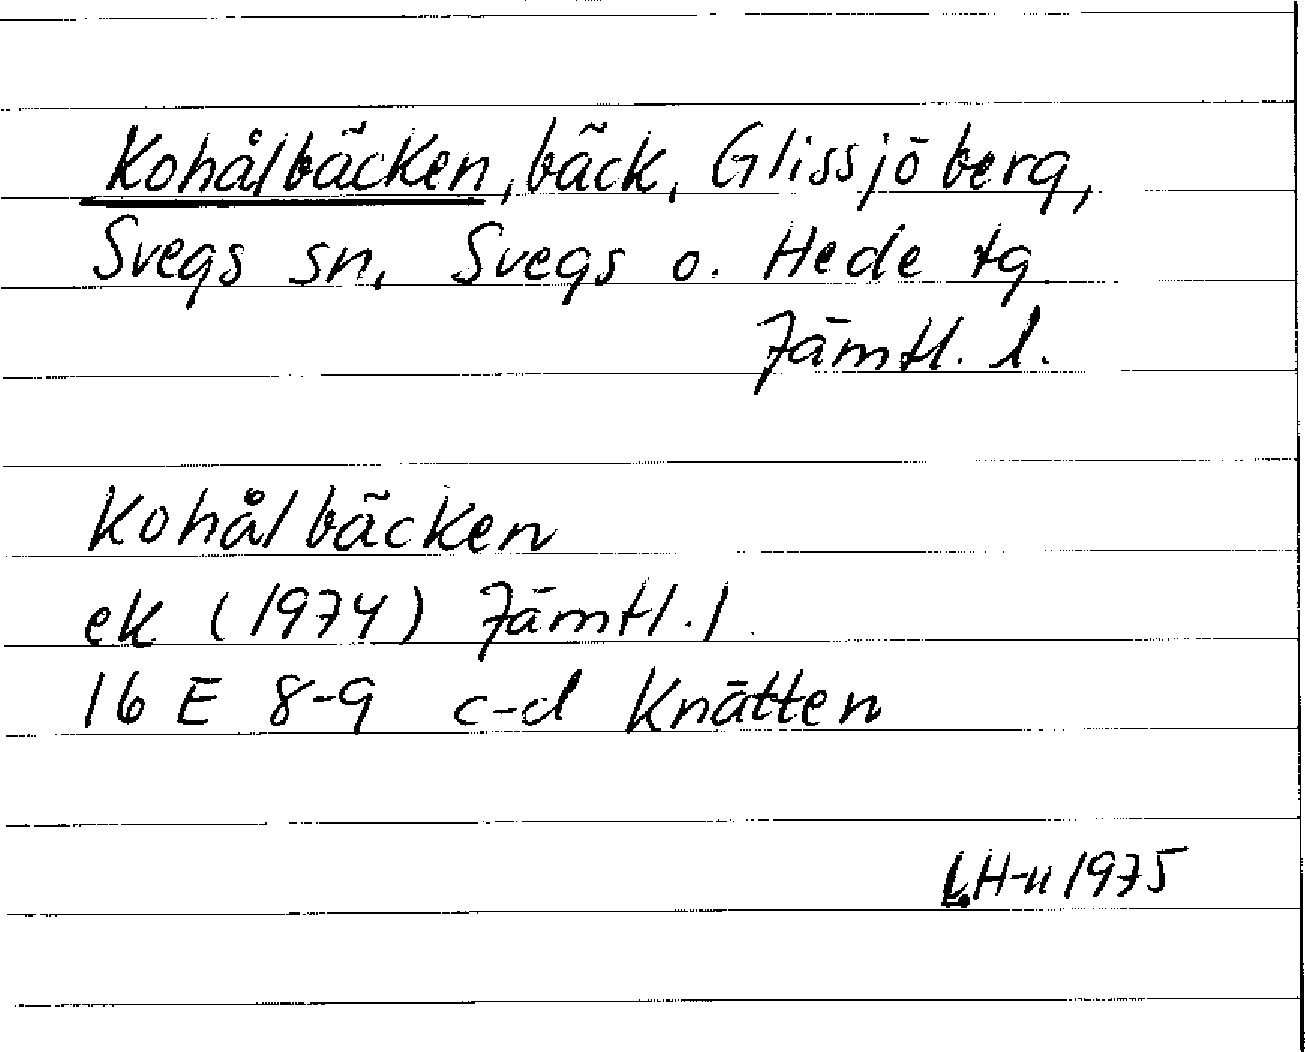 Kohålbäcken, bäck, Glissjöberg,
Svegs sn, Svegs o. Hede tg
Jämtl. l.
Kohålbäcken
ek (1974) Jämtl. l.
16 E 8-9 c-d Knätten
LH-n 1975